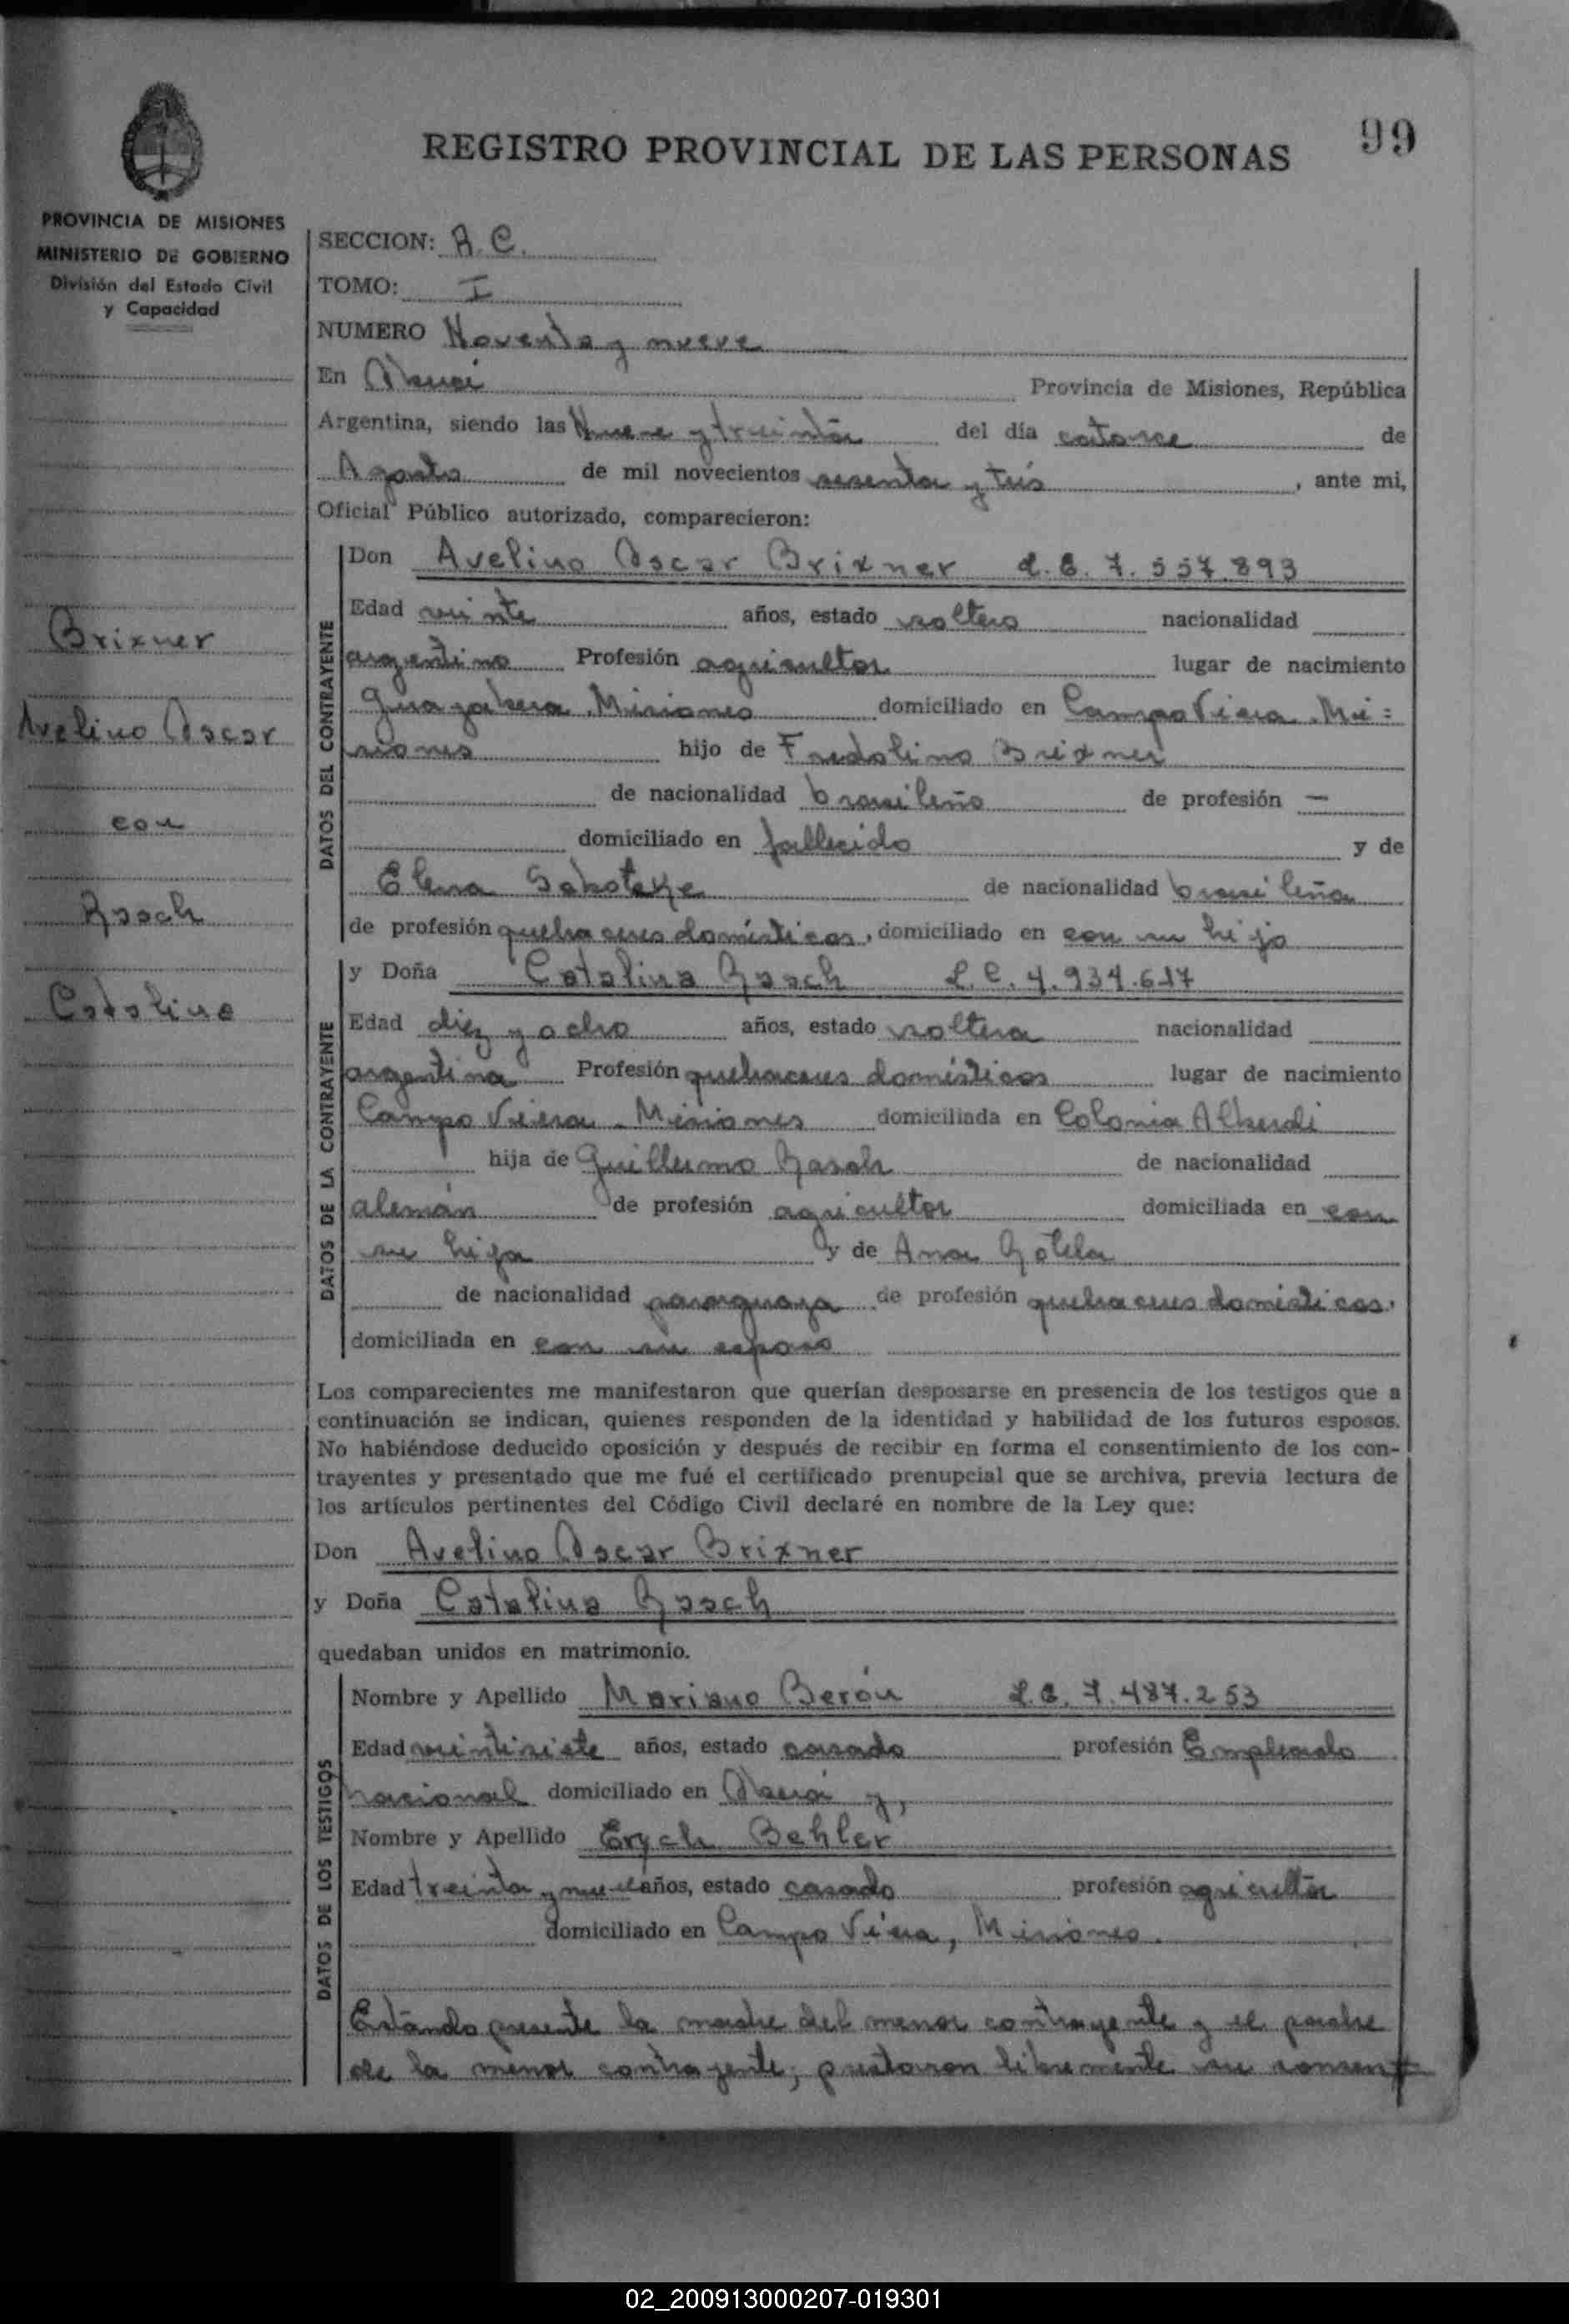 99
REGISTRO PROVINCIAL DE LAS PERSONAS
PROVINCIA DE MISIONES
MINISTERIO DE GOBIERNO
División del Estado Civil
y Capacidad
SECCION: A. C.
TOMO: I
NUMERO Noventa y nueve
En Provincia de Misiones, República
Argentina, siendo las Nueve y treinta del día catorce de
Agosto de mil novecientos sesenta y tres, ante mi,
Oficial Público autorizado, comparecieron:
Brixner
Avelino Oscar
con
Catalina
DATOS DEL CONTRAYENTE
Don Avelino Oscar Brixner L. E. 7.557.893
Edad veinte años, estado soltero nacionalidad
argentino Profesión agricultor lugar de nacimiento
Misiones domiciliado en Campo Viera. Mi=
siones hijo de Fredolino Brixner
de nacionalidad brasileño de profesión —
domiciliado en fallecido y de
Elena de nacionalidad brasileña
de profesión quehaceres domésticos, domiciliado en con su hijo
DATOS DE LA CONTRAYENTE
y Doña Catalina L. C. 4.934.617
Edad diez y ocho años, estado soltera nacionalidad
argentina Profesión quehaceres domésticos lugar de nacimiento
Campo Viera - Misiones domiciliada en Colonia Alberdi
hija de Guillermo de nacionalidad
alemán de profesión agricultor domiciliada en con
su hija y de Ana
de nacionalidad paraguaya de profesión quehaceres domésticos,
domiciliada en con su esposo
Los comparecientes me manifestaron que querían desposarse en presencia de los testigos que a
continuación se indican, quienes responden de la identidad y habilidad de los futuros esposos.
No habiéndose deducido oposición y después de recibir en forma el consentimiento de los con-
trayentes y presentado que me fué el certificado prenupcial que se archiva, previa lectura de
los artículos pertinentes del Código Civil declaré en nombre de la Ley que:
Don Avelino Oscar Brixner
y Doña Catalina
quedaban unidos en matrimonio.
DATOS DE LOS TESTIGOS
Nombre y Apellido Mariano Berón L. E. 7.487.253
Edad veintisiete años, estado casado profesión Empleado
nacional domiciliado en y,
Nombre y Apellido Erych Behler
Edad treinta y nueve años, estado casado profesión agricultor
domiciliado en Campo Viera, Misiones.
Estando presente la madre del menor contrayente y el padre
de la menor contrayente, prestaron libremente su consent
02_200913000207-019301